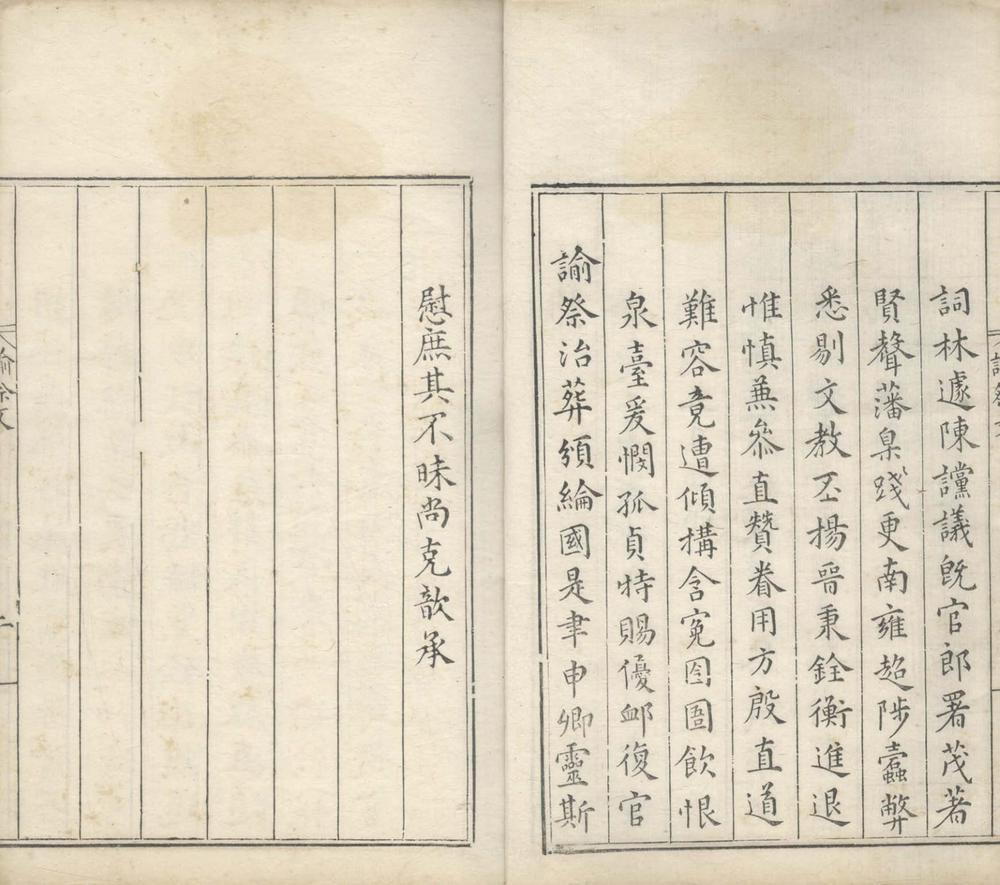 詞林遽陳讜議旣官郎署茂著
賢聲藩臬踐更南雍超陟蠧弊
悉剔文教丕揚晉秉銓衡進退
惟慎兼叅直贊眷用方殷直道
難容竟遭傾搆含寃囹圄飲恨
泉臺爰憫孤貞特賜優䘏復官
諭祭治葬頒綸國是聿申卿靈斯
慰庶其不昧尚克歆承
諭祭文
二